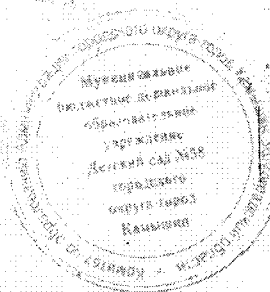 Муниципальное
бюджетное дошкольное
образовательное
учреждение
Детский сад №38
городского
округа-город
Камышин
Комитет по образованию
городского округа город
области